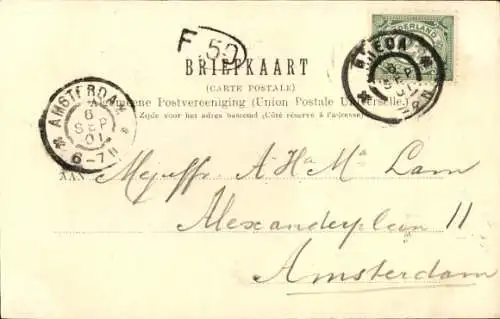 F 50
NEDERLAND
BREDA
SEP
01
BRIEFKAART
(CARTE POSTALE)
Algemeene Postvereeniging (Union Postale Universelle.)
Zijde voor het adres bestemd (Côté réservé à l'adresse)
AMSTERDAM
6
SEP
01
6-7N
AAN Mejuffr. A Ha Ma Lam
Alexanderplein 11
Amsterdam